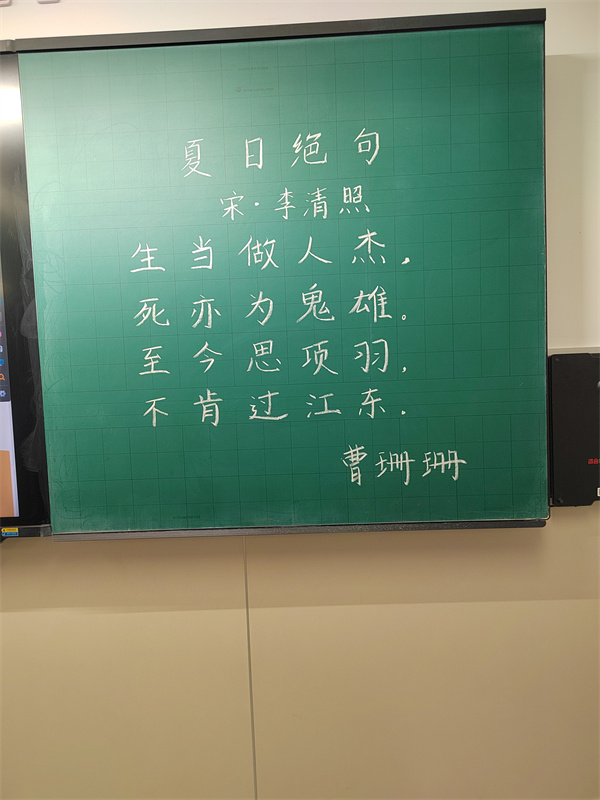 夏日绝句
宋·李清照
生当做人杰，
死亦为鬼雄。
至今思项羽，
不肯过江东.
曹珊珊